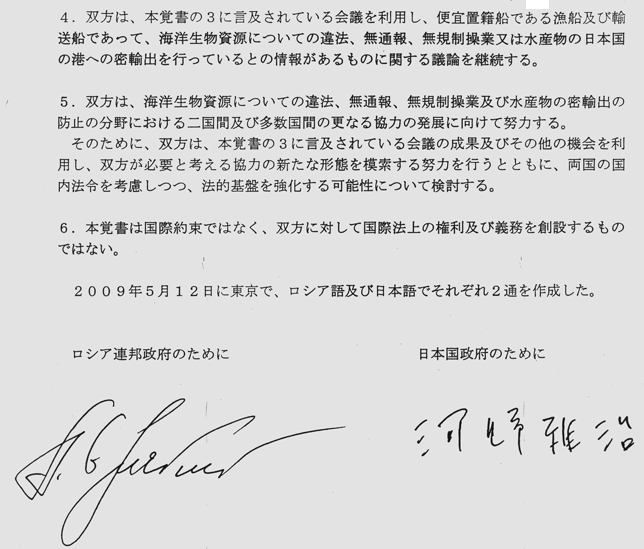 ４．双方は、本覚書の３に言及されている会議を利用し、便宜置籍船である漁船及び輸
送船であって、海洋生物資源についての違法、無通報、無規制操業又は水産物の日本国
の港への密輸出を行っているとの情報があるものに関する議論を継続する。
５．双方は、海洋生物資源についての違法、無通報、無規制操業及び水産物の密輸出の
防止の分野における二国間及び多数国間の更なる協力の発展に向けて努力する。
そのために、双方は、本覚書の３に言及されている会議の成果及びその他の機会を利
用し、双方が必要と考える協力の新たな形態を模索する努力を行うとともに、両国の国
内法令を考慮しつつ、法的基盤を強化する可能性について検討する。
６．本覚書は国際約束ではなく、双方に対して国際法上の権利及び義務を創設するもの
ではない。
２００９年５月１２日に東京で、ロシア語及び日本語でそれぞれ２通を作成した。
ロシア連邦政府のために
日本国政府のために
河野雅治